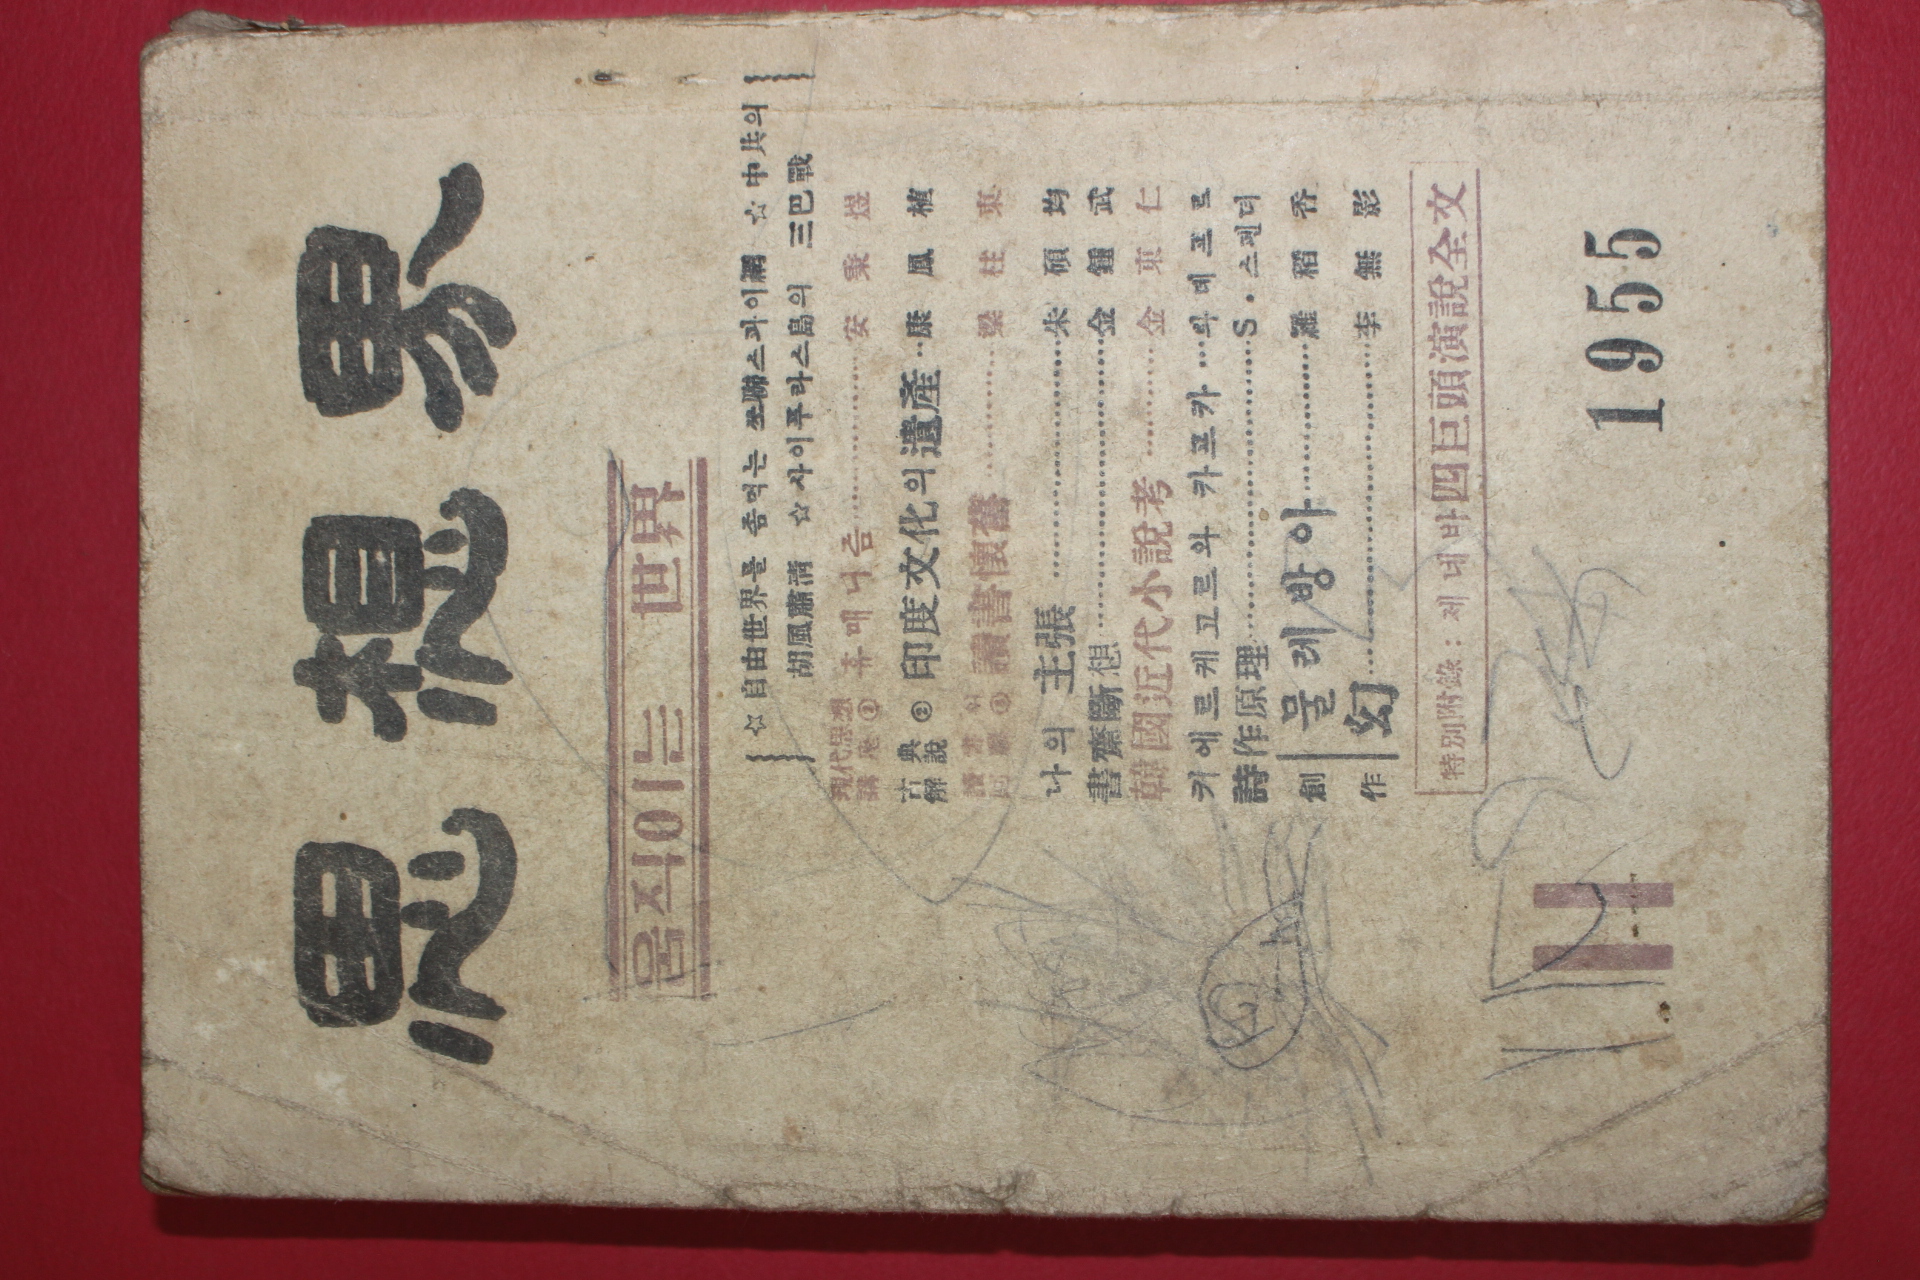 思想界
움직이는 世界
☆ 自由世界를 좀먹는 쏘聯스파이網 ☆ 中共의
胡風肅淸 ☆ 사이푸라스島의 三巴戰
現代思想講座① 휴매니즘……安秉煜
古典解說② 印度文化의 遺產……康鳳植
讀書懷舊……梁柱東
나의 主張……朱碩均
書齋斷想……金鍾武
韓國近代小說考……金東仁
키에르케고르와 카프카……와데프르
詩作原理……S・스펜더
創作 물레방아……羅稻香
幻……李無影
特別附錄 : 제네바四巨頭演說全文
11
1955